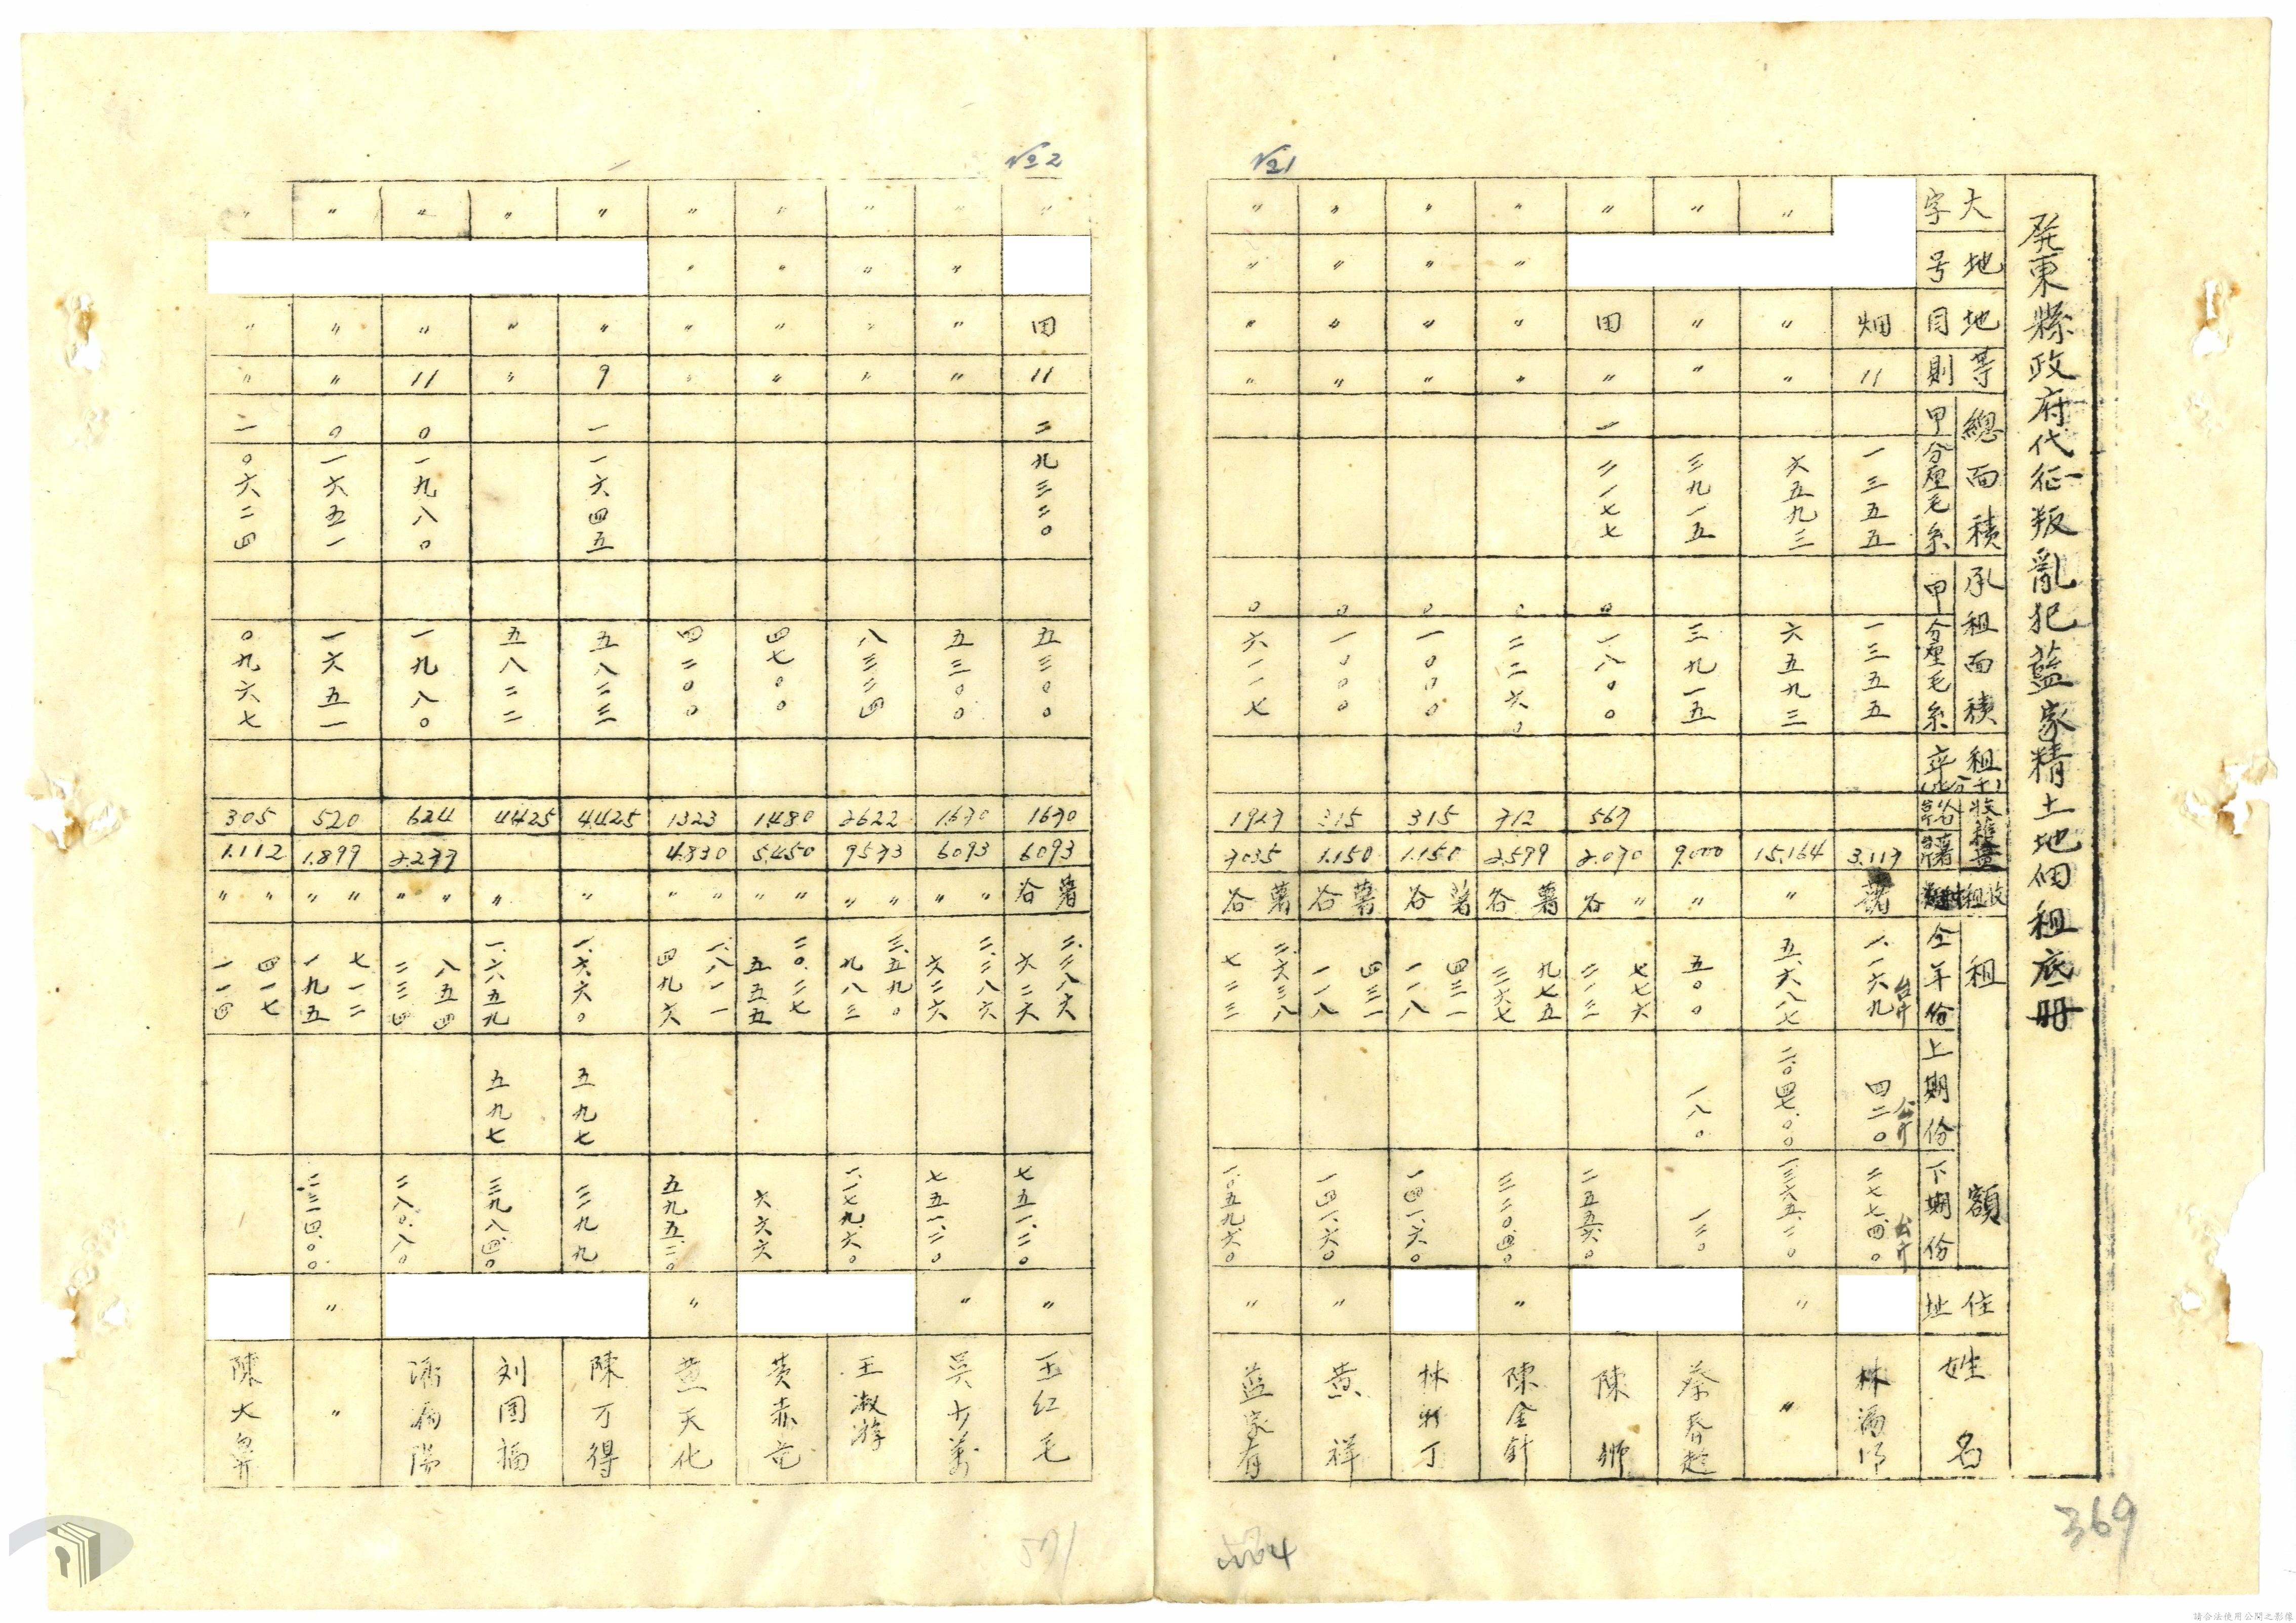 屏東縣政府代征叛亂犯藍家精土地佃租底冊
大字 地号 地目 等則 總面積 甲分厘毛糸 承租面積 甲分厘毛糸 租率 收穫量 谷台斤 薯台斤 收租 租額 全年份 上期份 下期份 住址 姓名
畑 11 一三五五 一三五五 3.117 薯 一.一六九台斤 四二〇公斤 二七七.四〇公斤 林
〃 〃 〃 六五九三 六五九三 15.164 〃 五.六八七 二.〇四七.〇〇 一三六五.二〇 〃 〃
〃 〃 〃 三九一五 三九一五 9.000 〃 五〇〇 一八〇 一二〇 蔡春趁
〃 田 〃 一 二一七七 〇 一八〇〇 567 2.070 谷〃 二一二 七七六 二五五.六〇 陳獅
〃 〃 〃 〃 〇 二二六〇 712 2.599 谷薯 二六七 九七五 三二〇.四〇 〃 陳金針
〃 〃 〃 〃 〇 一〇〇〇 315 1.150 谷薯 一一八 四三一 一四一.六〇 林 丁
〃 〃 〃 〃 〇 一〇〇〇 315 1.150 谷薯 一一八 四三一 一四一.六〇 〃 黃祥
〃 〃 〃 〃 〇 六一一七 1927 7035 谷薯 七二三 二.六三八 一.〇五九.六〇 〃 藍家有
№1
№2
〃 田 11 二 九三二〇 五三〇〇 1670 6093 谷薯 六二六 二.二八六 七五一.二〇 〃 王紅毛
〃 〃 〃 〃 五三〇〇 1670 6093 〃 〃 六二六 二.二八六 七五一.二〇 〃 吳 萬
〃 〃 〃 〃 八三二四 2622 9573 〃 〃 九八三 三.五九〇 一.一七九.六〇 王淑
〃 〃 〃 〃 四七〇〇 1480 5.450 〃 〃 五五五 二〇.二七 六六六 黃赤
〃 〃 〃 〃 四二〇〇 1323 4.830 〃 〃 四九六 一.八一一 五九五.二〇 〃 黃天化
〃 〃 9 一 一六四五 五八二三 4425 〃 一.六六〇 五九七 三九九 陳万得
〃 〃 〃 五八二二 4425 〃 一.六五九 五九七 三九八.四〇 刘園福
〃 〃 11 〇 一九八〇 一九八〇 624 2.277 〃 〃 二三四 八五四 二八〇.八〇
〃 〃 〃 〇 一六五一 一六五一 520 1.899 〃 〃 一九五 七一二 二三四.〇〇 〃 〃
〃 〃 〃 二 〇六二四 〇九六七 305 1.112 〃 〃 一一四 四一七 陳大鼻
369